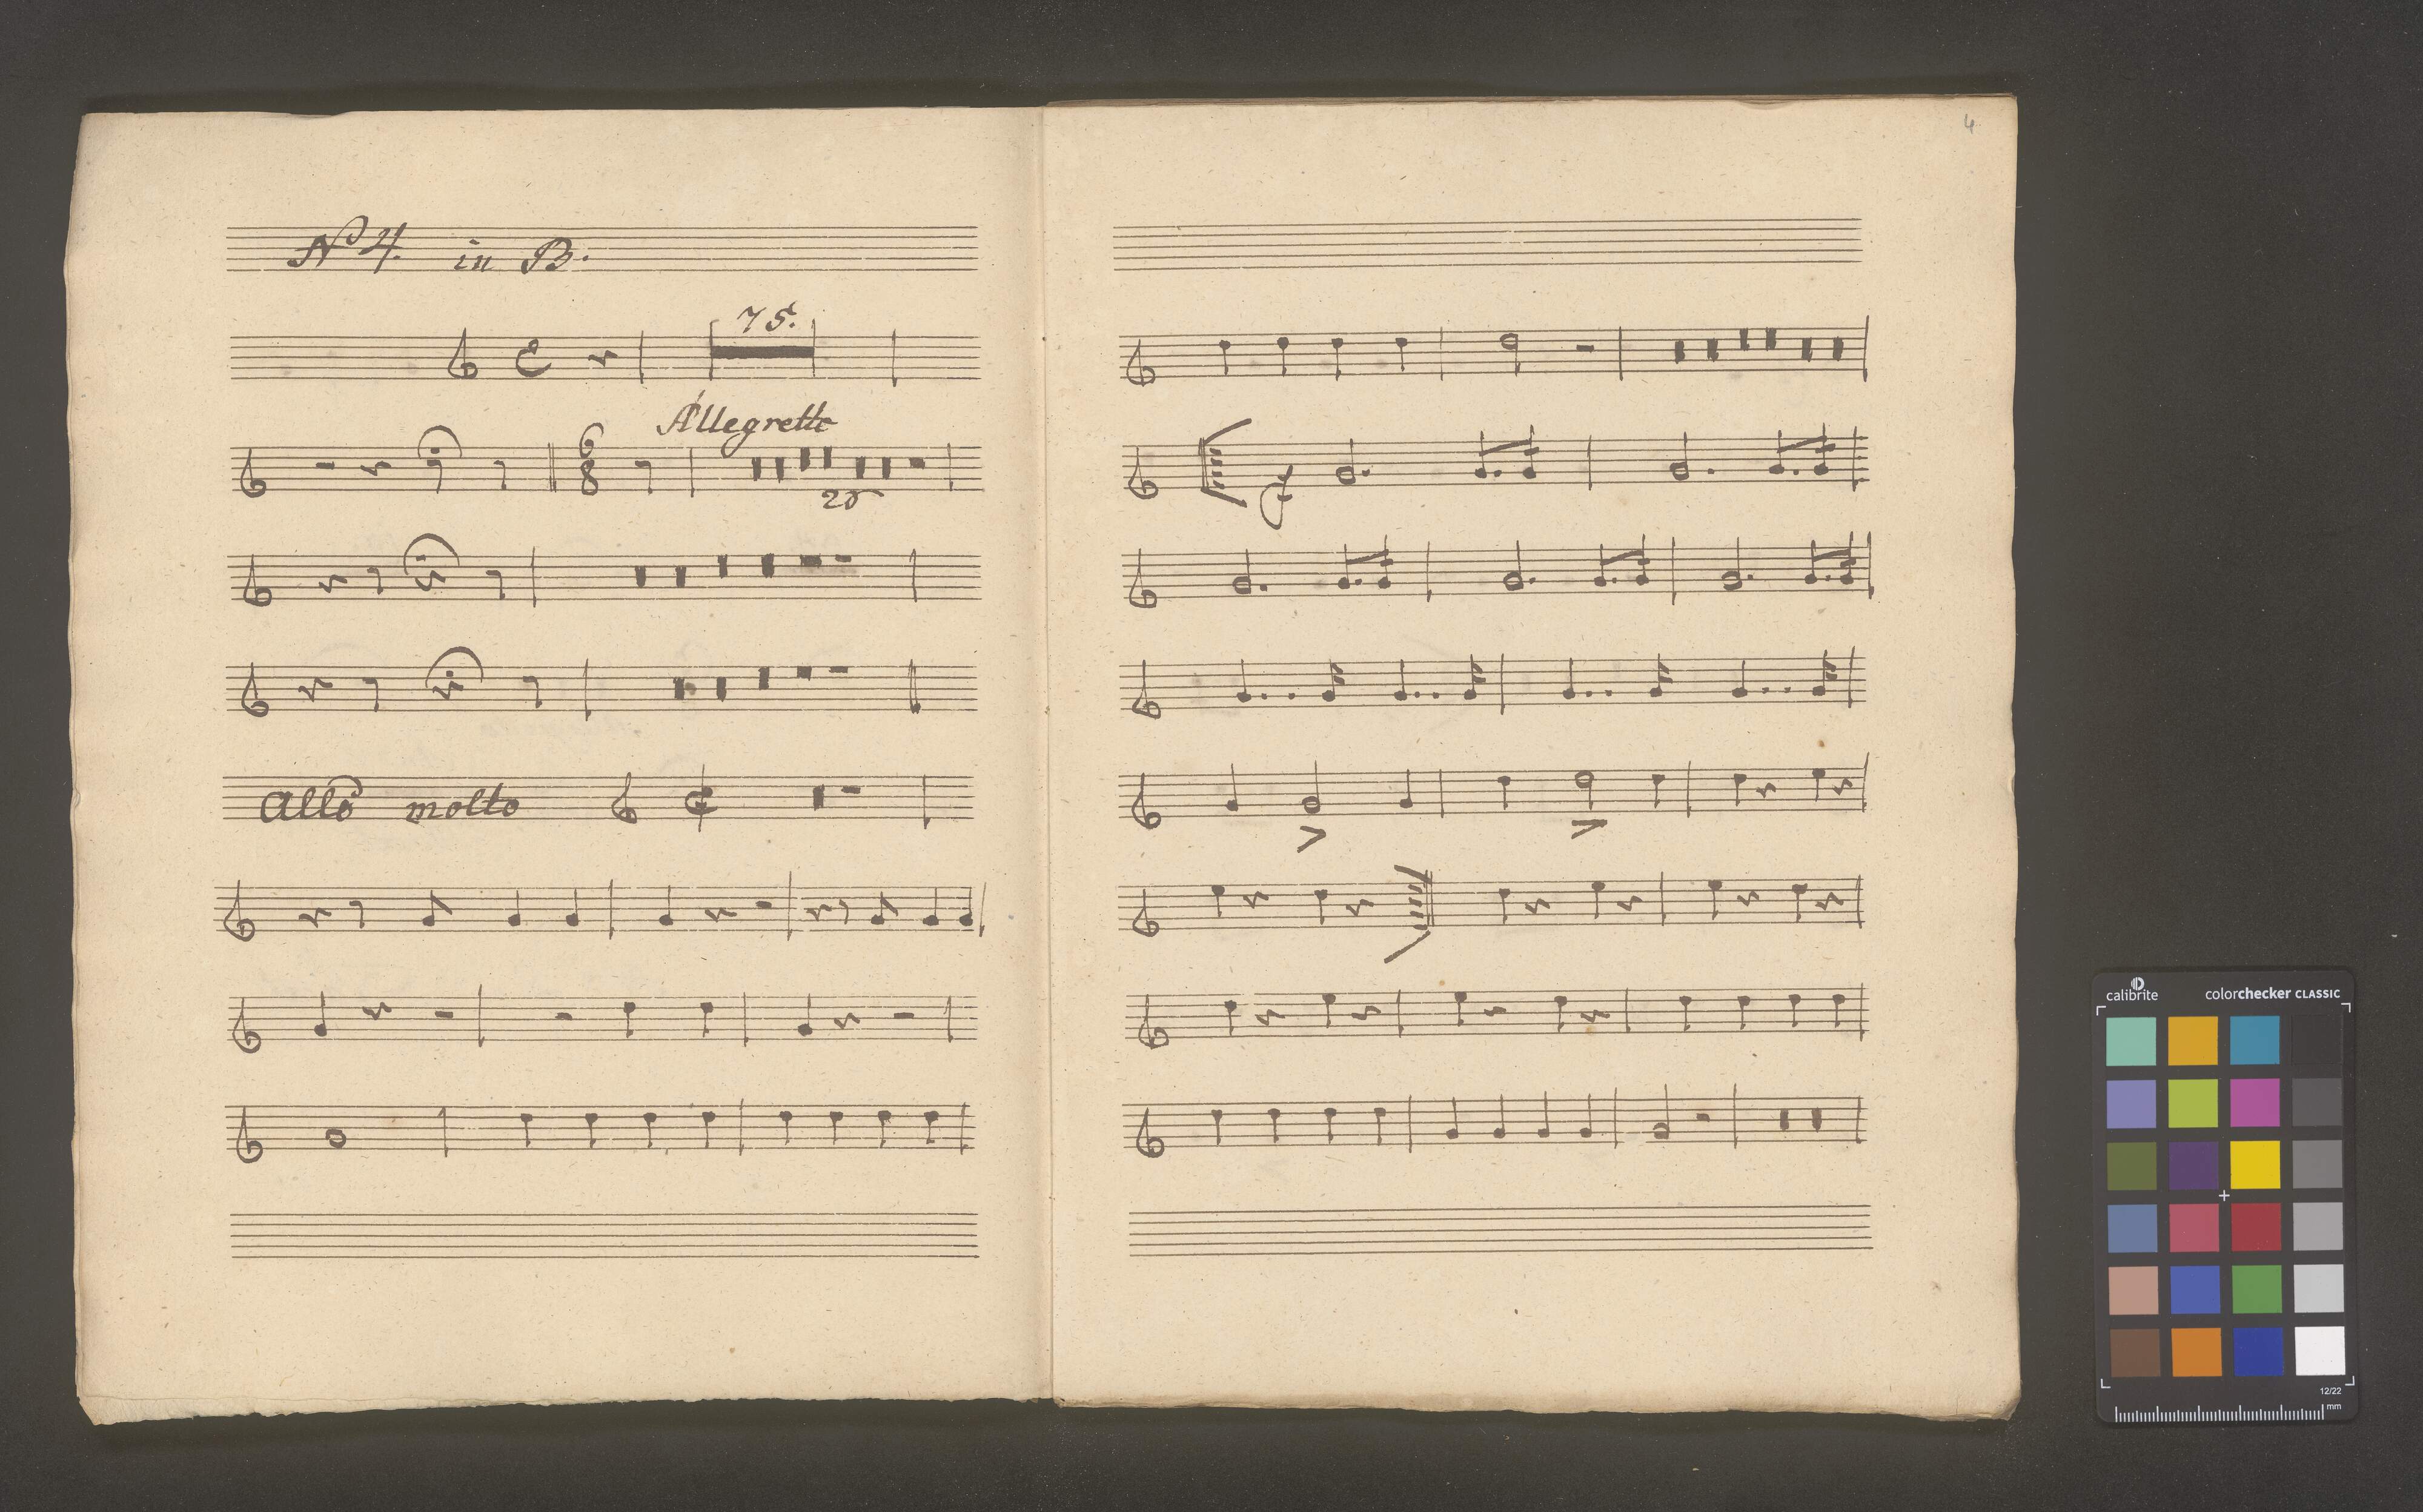 N 4. in B.
75.
Allegretto
6
8
20
Allo molto
4
f
calibrite colorchecker CLASSIC
12/22
mm